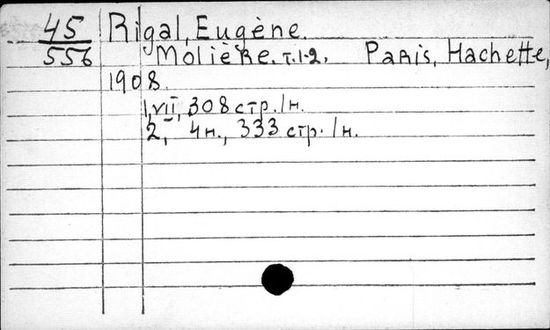 45 Rigal, Eugène.
556 Molière. т.1-2. Paris, Hachette,
1908
1, VII, 308 стр. 1н.
2, 4н., 333 стр. 1н.